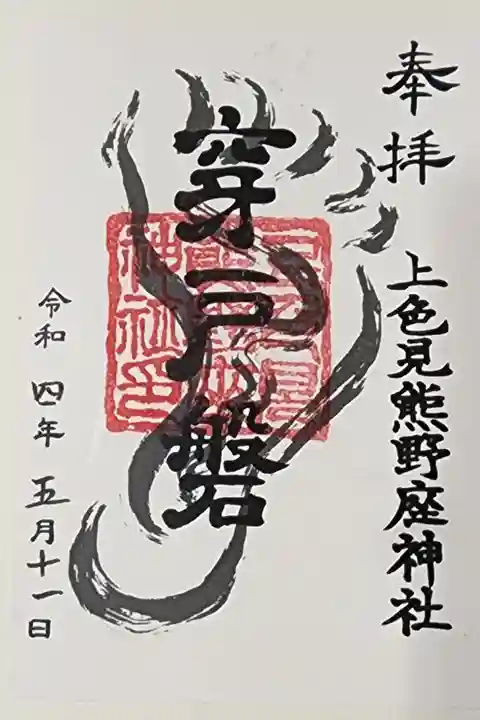 奉拝
上色見熊野座神社
穿戸磐
令和四年五月十一日